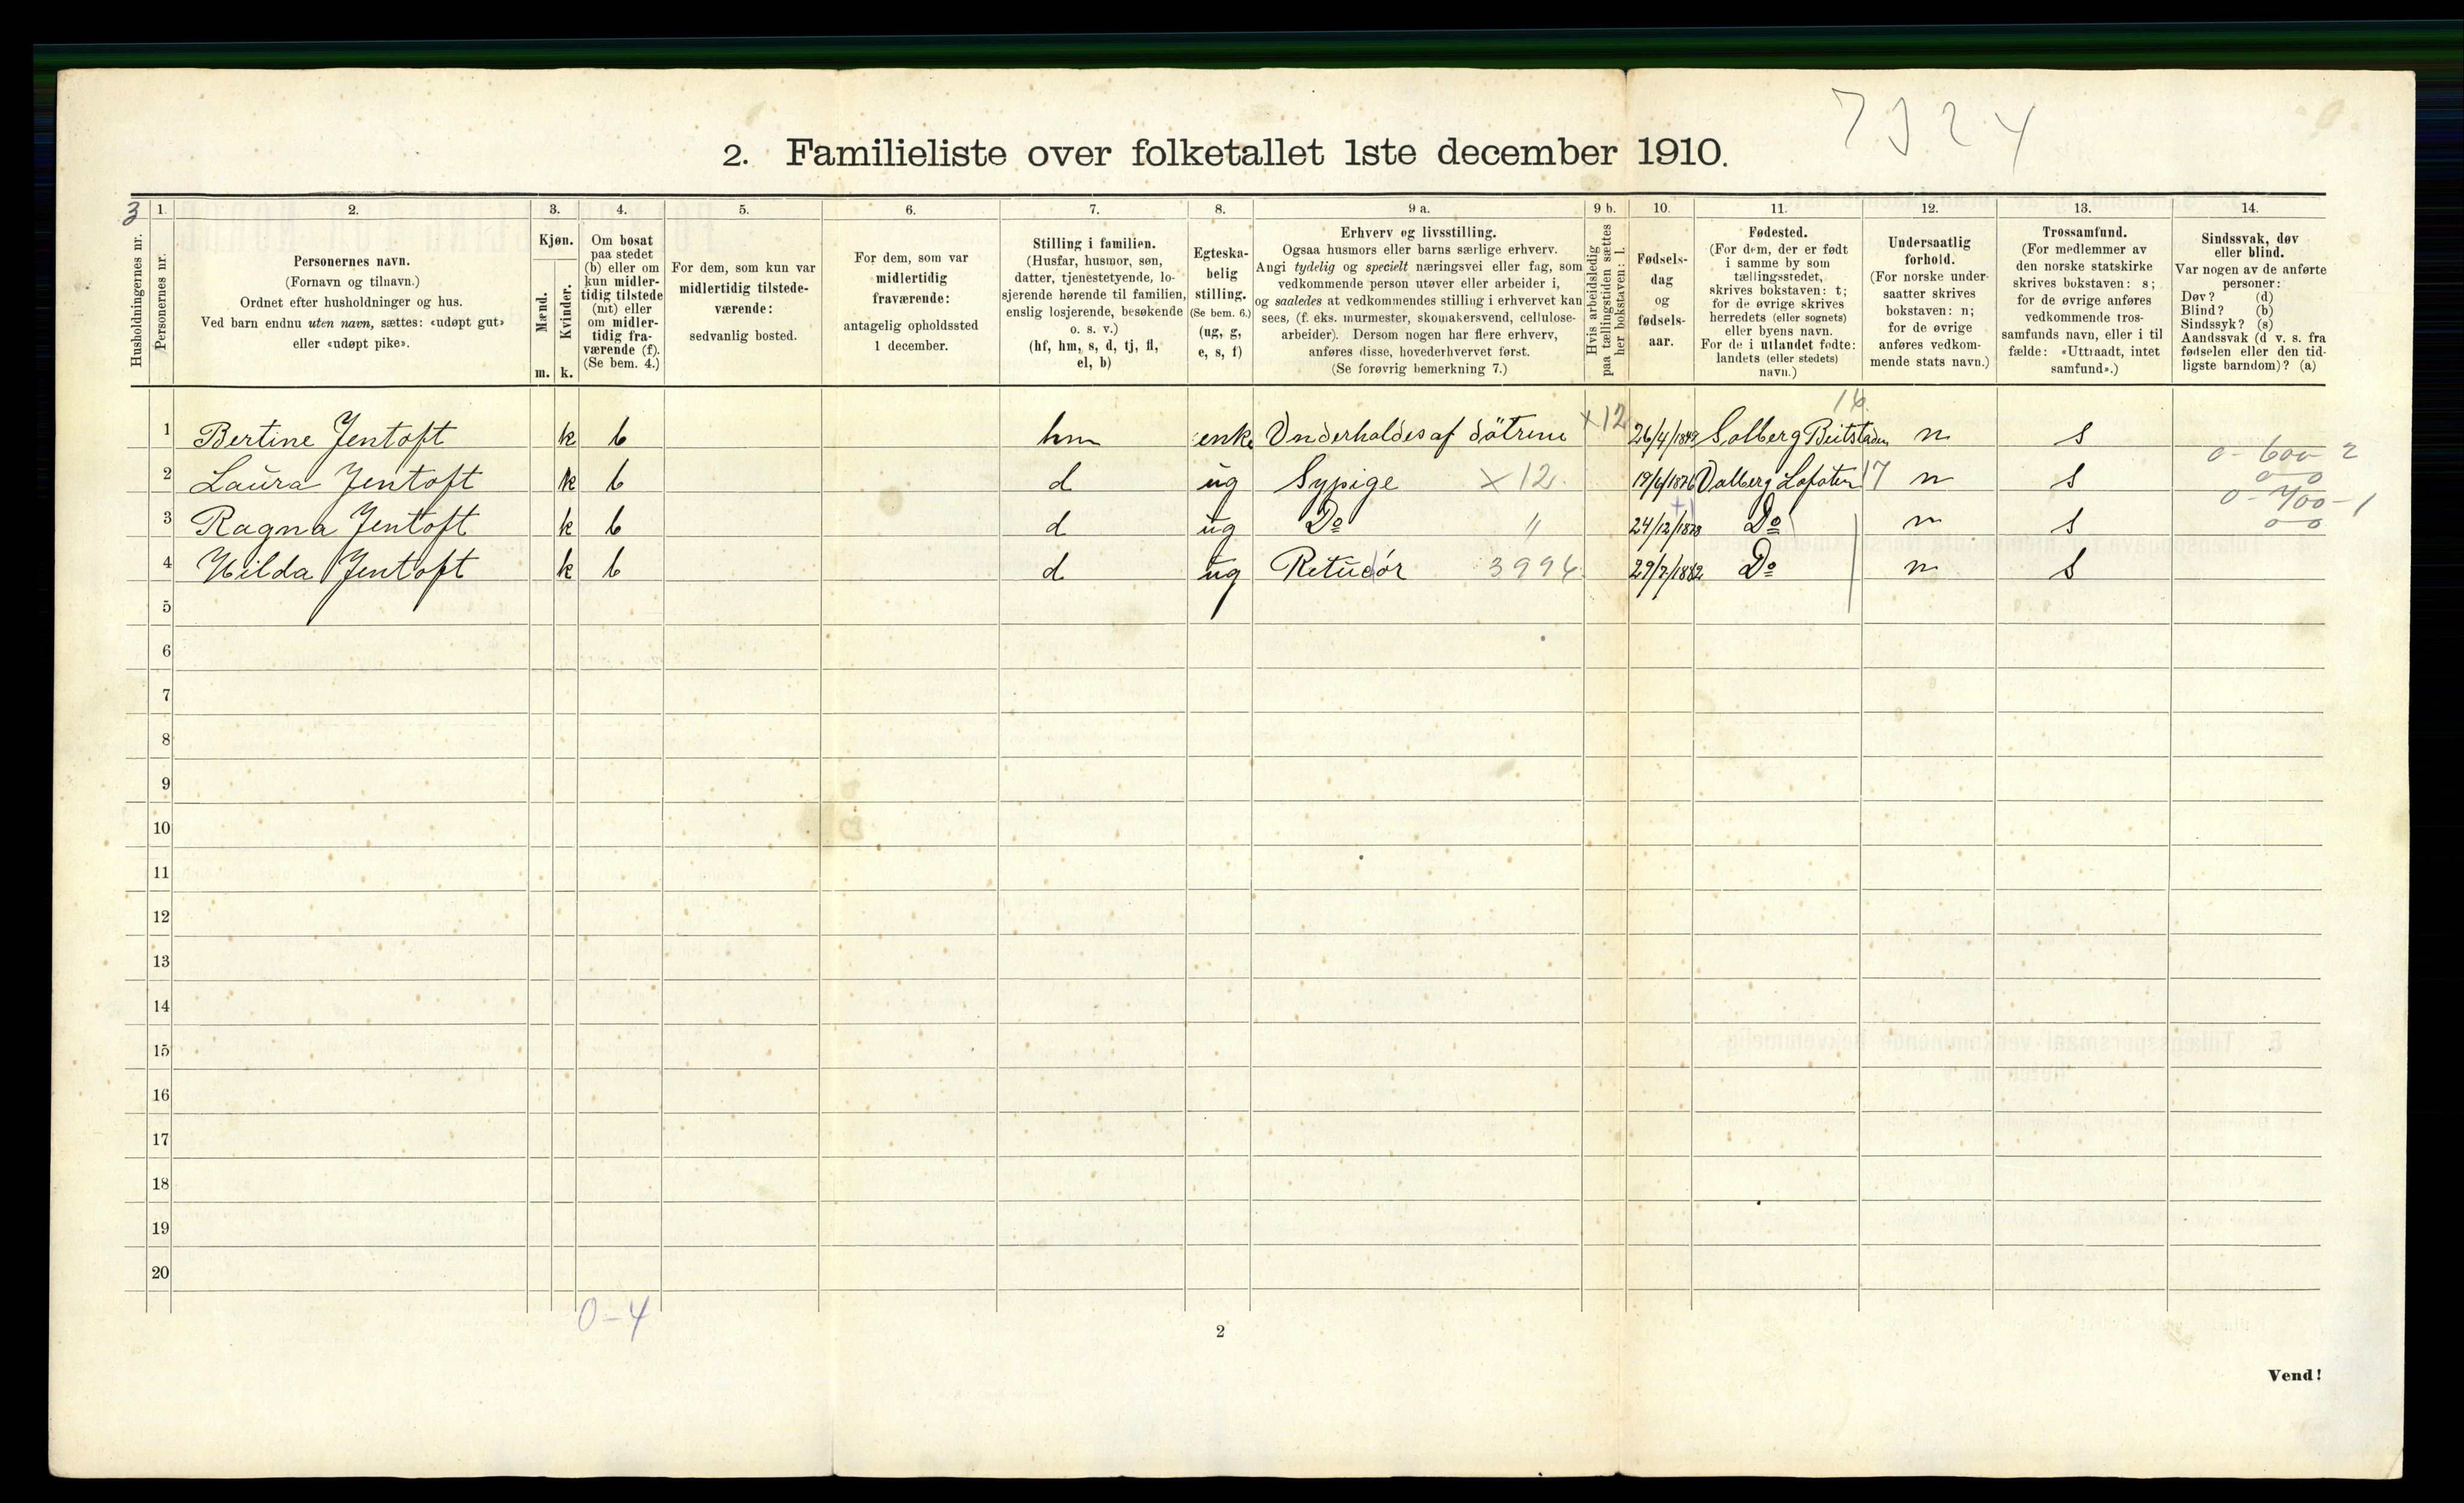 7324
2. Familieliste over folketallet 1ste december 1910.
3
Husholdningernes nr.
1.
Personernes nr.
2.
Personernes navn.
(Fornavn og tilnavn.)
Ordnet efter husholdninger og hus.
Ved barn endnu uten navn, sættes: «udøpt gut»
eller «udøpt pike».
3.
Kjøn.
Mænd.
Kvinder.
m. k.
4.
Om bosat
paa stedet
(b) eller om
kun midler-
tidig tilstede
(mt) eller
om midler-
tidig fra-
værende (f).
(Se bem. 4.)
5.
For dem, som kun var
midlertidig tilstede-
værende:
sedvanlig bosted.
6.
For dem, som var
midlertidig
fraværende:
antagelig opholdssted
1 december.
7.
Stilling i familien.
(Husfar, husmor, søn,
datter, tjenestetyende, lo-
sjerende hørende til familien,
enslig losjerende, besøkende
o. s. v.)
(hf, hm, s, d, tj, fl,
el, b)
8.
Egteska-
belig
stilling.
(Se bem. 6.)
(ug, g,
e, s, f)
9 a.
Erhverv og livsstilling.
Ogsaa husmors eller barns særlige erhverv.
Angi tydelig og specielt næringsvei eller fag, som
vedkommende person utøver eller arbeider i,
og saaledes at vedkommendes stilling i erhvervet kan
sees, (f. eks. murmester, skomakersvend, cellulose-
arbeider). Dersom nogen har flere erhverv,
anføres disse, hovederhvervet først.
(Se forøvrig bemerkning 7.)
9 b.
Hvis arbeidsledig
paa tællingstiden sættes
her bokstaven: l.
10.
Fødsels-
dag
og
fødsels-
aar.
11.
Fødested.
(For dem, der er født
i samme by som
tællingsstedet,
skrives bokstaven: t;
for de øvrige skrives
herredets (eller sognets)
eller byens navn.
For de i utlandet fødte:
landets (eller stedets)
navn.)
12.
Undersaatlig
forhold.
(For norske under-
saatter skrives
bokstaven: n;
for de øvrige
anføres vedkom-
mende stats navn.)
13.
Trossamfund.
(For medlemmer av
den norske statskirke
skrives bokstaven: s;
for de øvrige anføres
vedkommende tros-
samfunds navn, eller i til-
fælde: «Uttraadt, intet
samfund».)
14.
Sindssvak, døv
eller blind.
Var nogen av de anførte
personer:
Døv? (d)
Blind? (b)
Sindssyk? (s)
Aandssvak (d v. s. fra
fødselen eller den tid-
ligste barndom)? (a)
16
1 Bertine Jentoft k b hm enke Underholdes af döttrene x12 26/4/1849 Solberg Beitstaden n s
0 - 600 - 2
2 Laura Jentoft k b d ug Sypige x12 19/6/1876 Valberg Lofoten 17 n s 0-0
0 - 400 - 1
3 Ragna Jentoft k b d ug Do " 24/12/1878 Do n s 0-0
4 Hilda Jentoft k b d ug 3994 29/7/1882 Do n s
5
6
7
8
9
10
11
12
13
14
15
16
17
18
19
20
0-4
2
Vend!